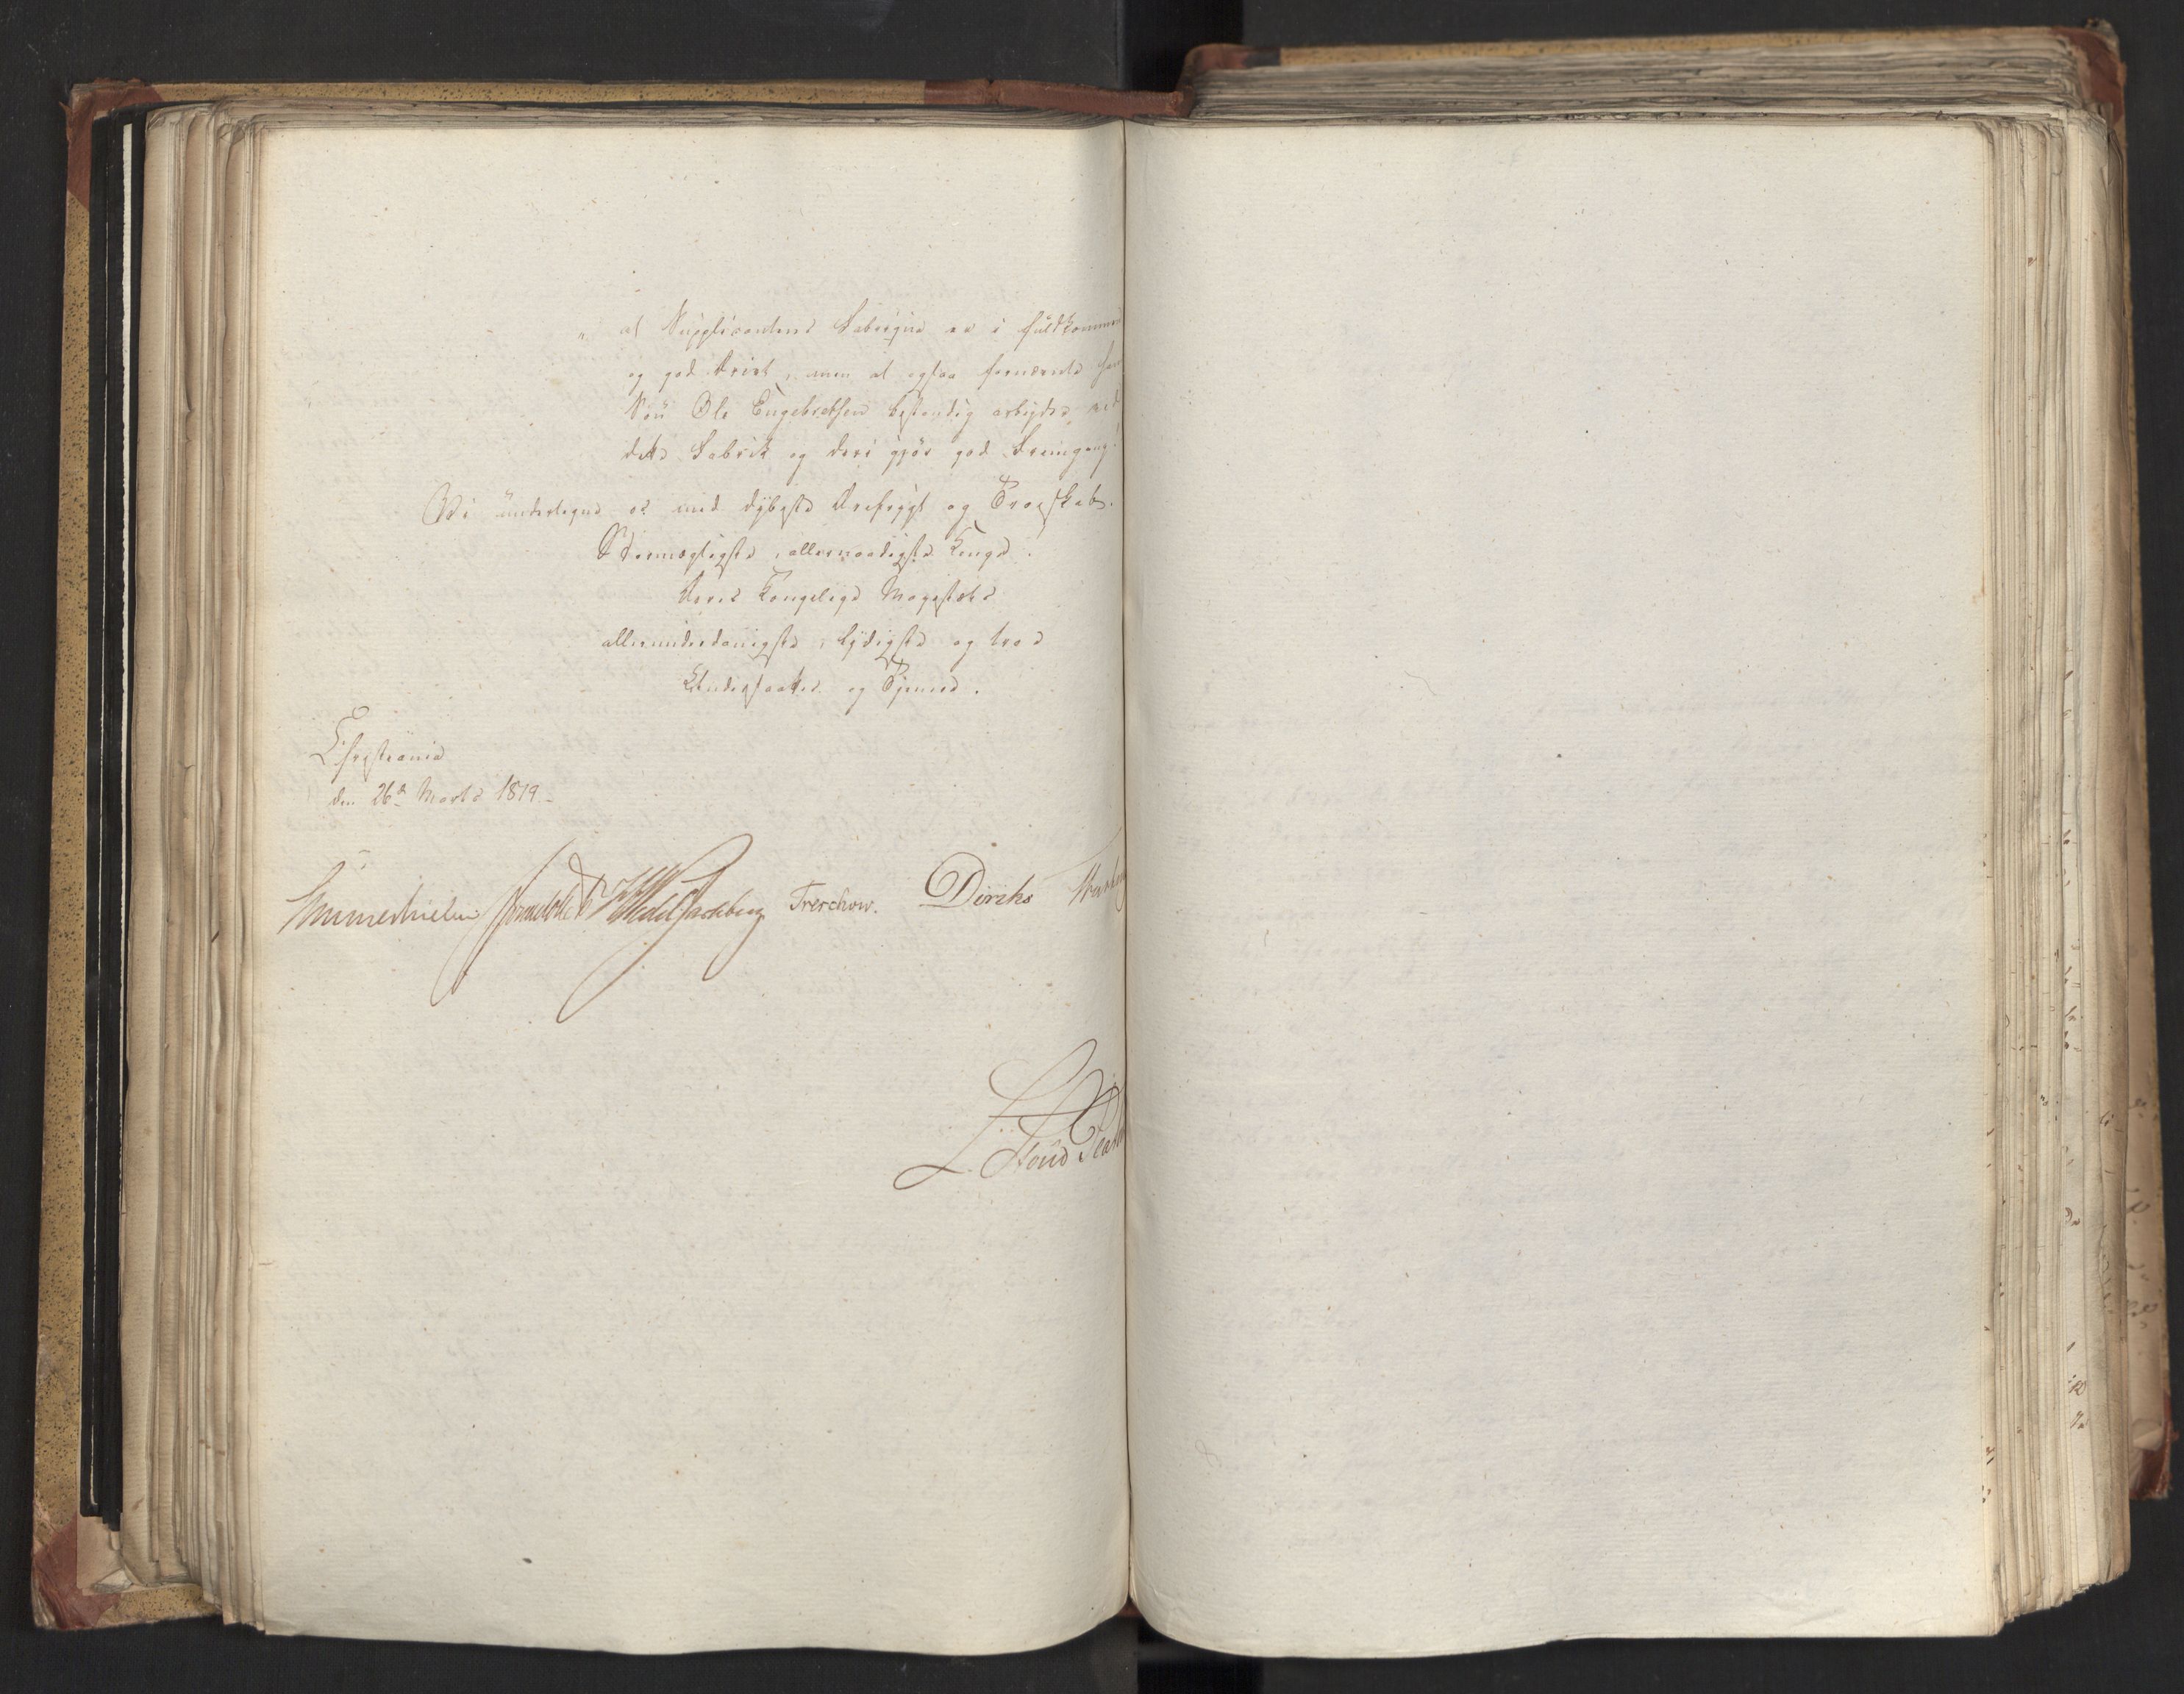 „ at Supplicantens Fabrique er i fuldkommen
og god Drivt, men at ogsaa fornævnte hans
Søn Ole Engebretsen bestandig arbeyder ved
dette Fabrik og deri gjør god Fremgang.“
Vi undertegne os med dybeste Ærefrygt og Troeskab.
Stormægtigste, allernaadigste Konge!
Deres Kongelige Majestæts
allerunderdanigste, lydigste og troe
Undersaatter og Tjenere.
Christiania
den 26de Marts 1819
Sommerhielm Wedel Jarlsberg Treschow. Diriks